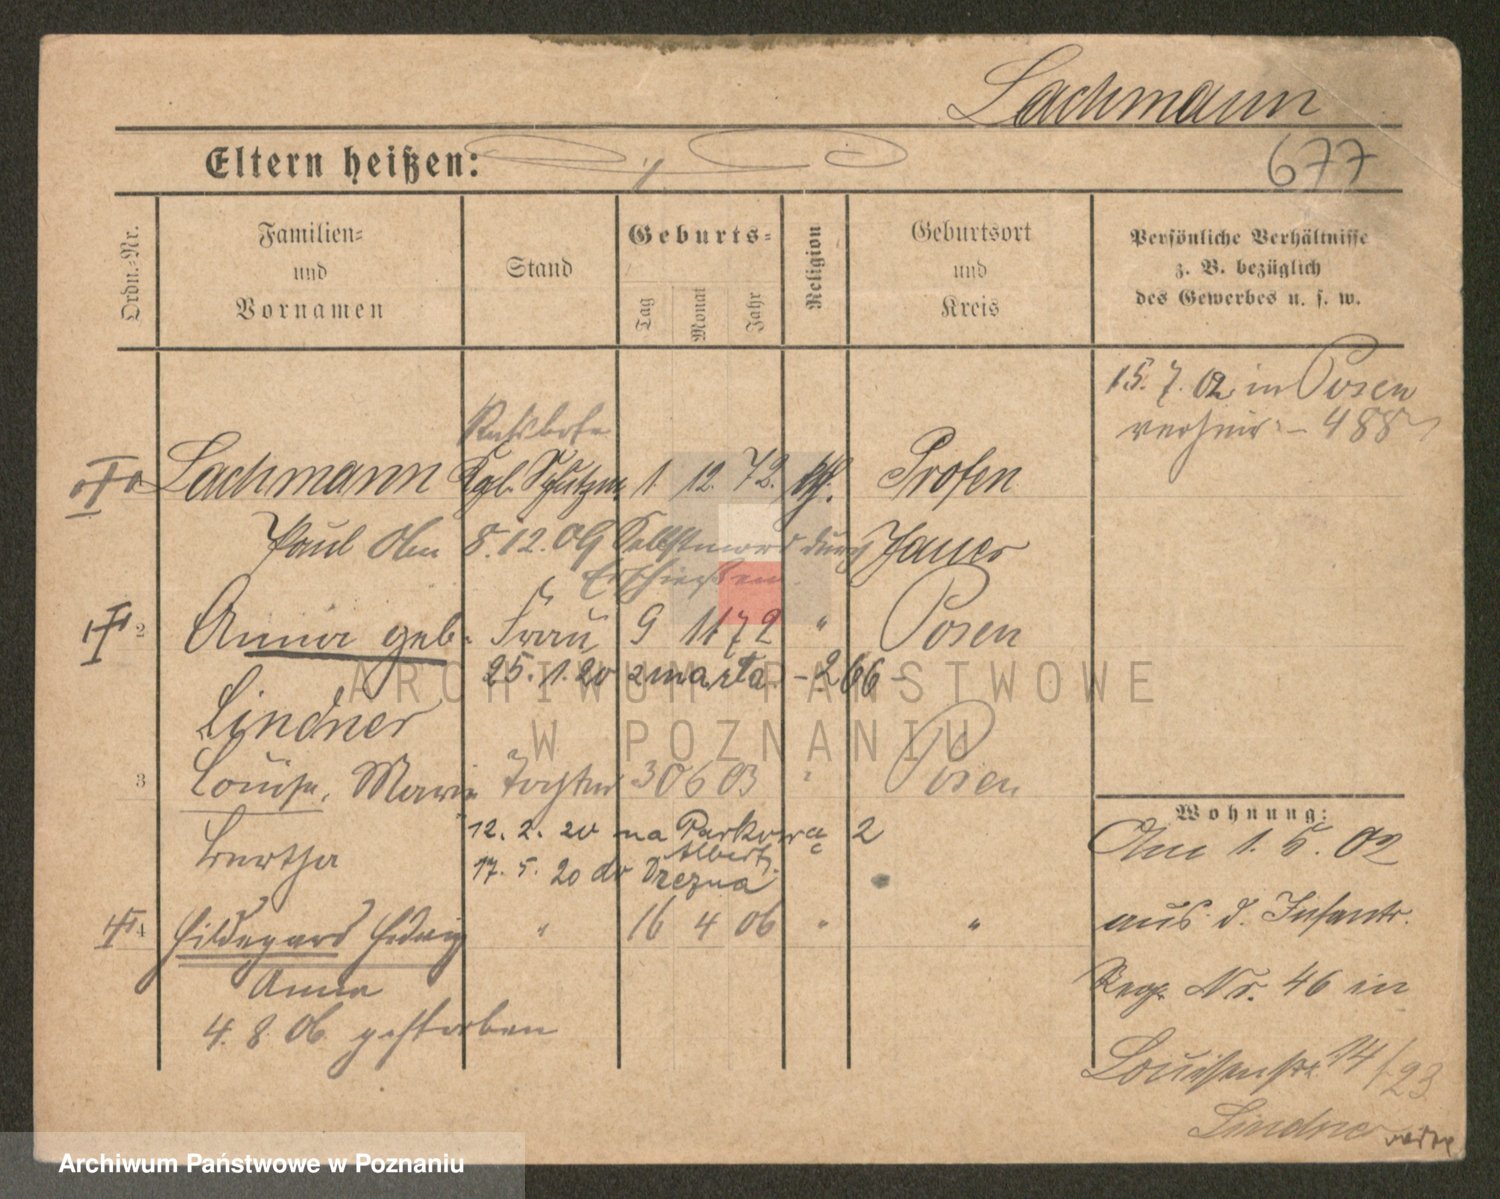 Lachmann
Eltern heißen:
677
Ordn.-Nr.
Familien-
und
Vornamen
Stand
Geburts-
Tag
Monat
Jahr
Religion
Geburtsort
und
Kreis
Persönliche Verhältnisse
z. B. bezüglich
des Gewerbes u. s. w.
15. 7. 02 in Posen
verheir. – 488
Lachmann Kgl. Schutzm. 1 12. 72. kth. Profen
Paul 8.12.09 Selbstmord durch Jauer
Erschießen.
2 Anna geb. Frau 9 11 72 " Posen
25. 1. 20 zmarła - 266 -
Lindner
3 Louise, Marie Tochter 30 6 03 " Posen
Bertha
12. 2. 20 na Parkowa 2
17. 5. 20 do Drezna
4 Hildegard Hedwig " 16 4 06 " "
Anna
4. 8. 06 gestorben
Wohnung:
Am 1. 5. 02
aus d. Infantr.
Reg. Nr. 46 in
Louisenstr 14/23
Lindner
ARCHIWUM PAŃSTWOWE
W POZNANIU
Archiwum Państwowe w Poznaniu